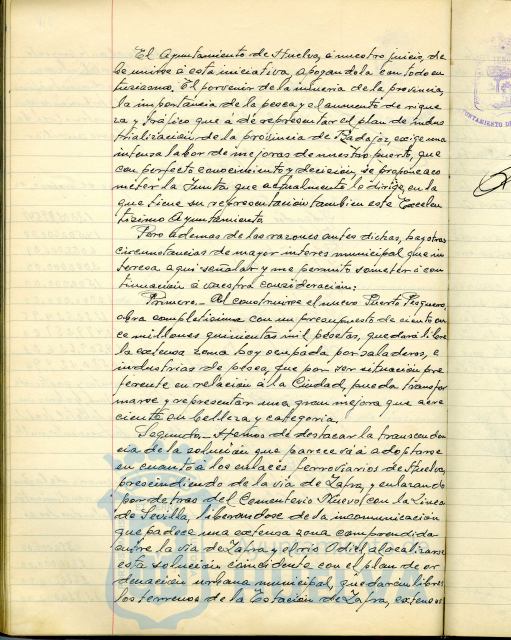 El Ayuntamiento de Huelva, á nuestro juicio, de
be unirse á esta iniciativa, apoyandola con todo en
tusiasmo. El porvenir de la mineria de la provincia,
la importancia de la pesca y el aumento de rique
za y tráfico que á de representar el plan de indus
trialización de la provincia de Badajoz, exige una
intensa labor de mejoras de nuestro puerto, que
con perfecto conocimiento y decisión, se propone aco
meter la Junta que actualmente lo dirige, en la
que tiene su representación tambien este Excelen
tisimo Ayuntamiento
Pero ademas de las razones antes dichas, hay otras
circunstancias de mayor interes municipal que in
teresa aqui señalar y me permito someter á con
tinuación á vuestra consideración:
Primero.- Al construirse el nuevo Puerto Pesquero,
obra completisima con un presupuesto de ciento on
ce millones quinientas mil pesetas, quedará libre
la extensa zona hoy ocupada por saladeros, e
industrias de pesca, que por ser situación pre
ferente en relación á la Ciudad, pueda transfor
marse y representar una gran mejora que acre
ciente en belleza y categoria.
Segundo.- Hemos de destacar la transcenden
cia de la solución que parece vá á adoptarse
en cuanto á los enlaces ferroviarios de Huelva,
prescindiendo de la via de Zafra, y enlazando
por detras del Cementerio Nuevo con la Linea
de Sevilla, liberandose de la incomunicación
que padece una extensa zona comprendida
entre la via de Zafra y el rio Odiel, al realizarse
esta solución coincidente con el plan de or
denación urbana municipal, quedarán libres
los terrenos de la Estación de Zafra, extensos